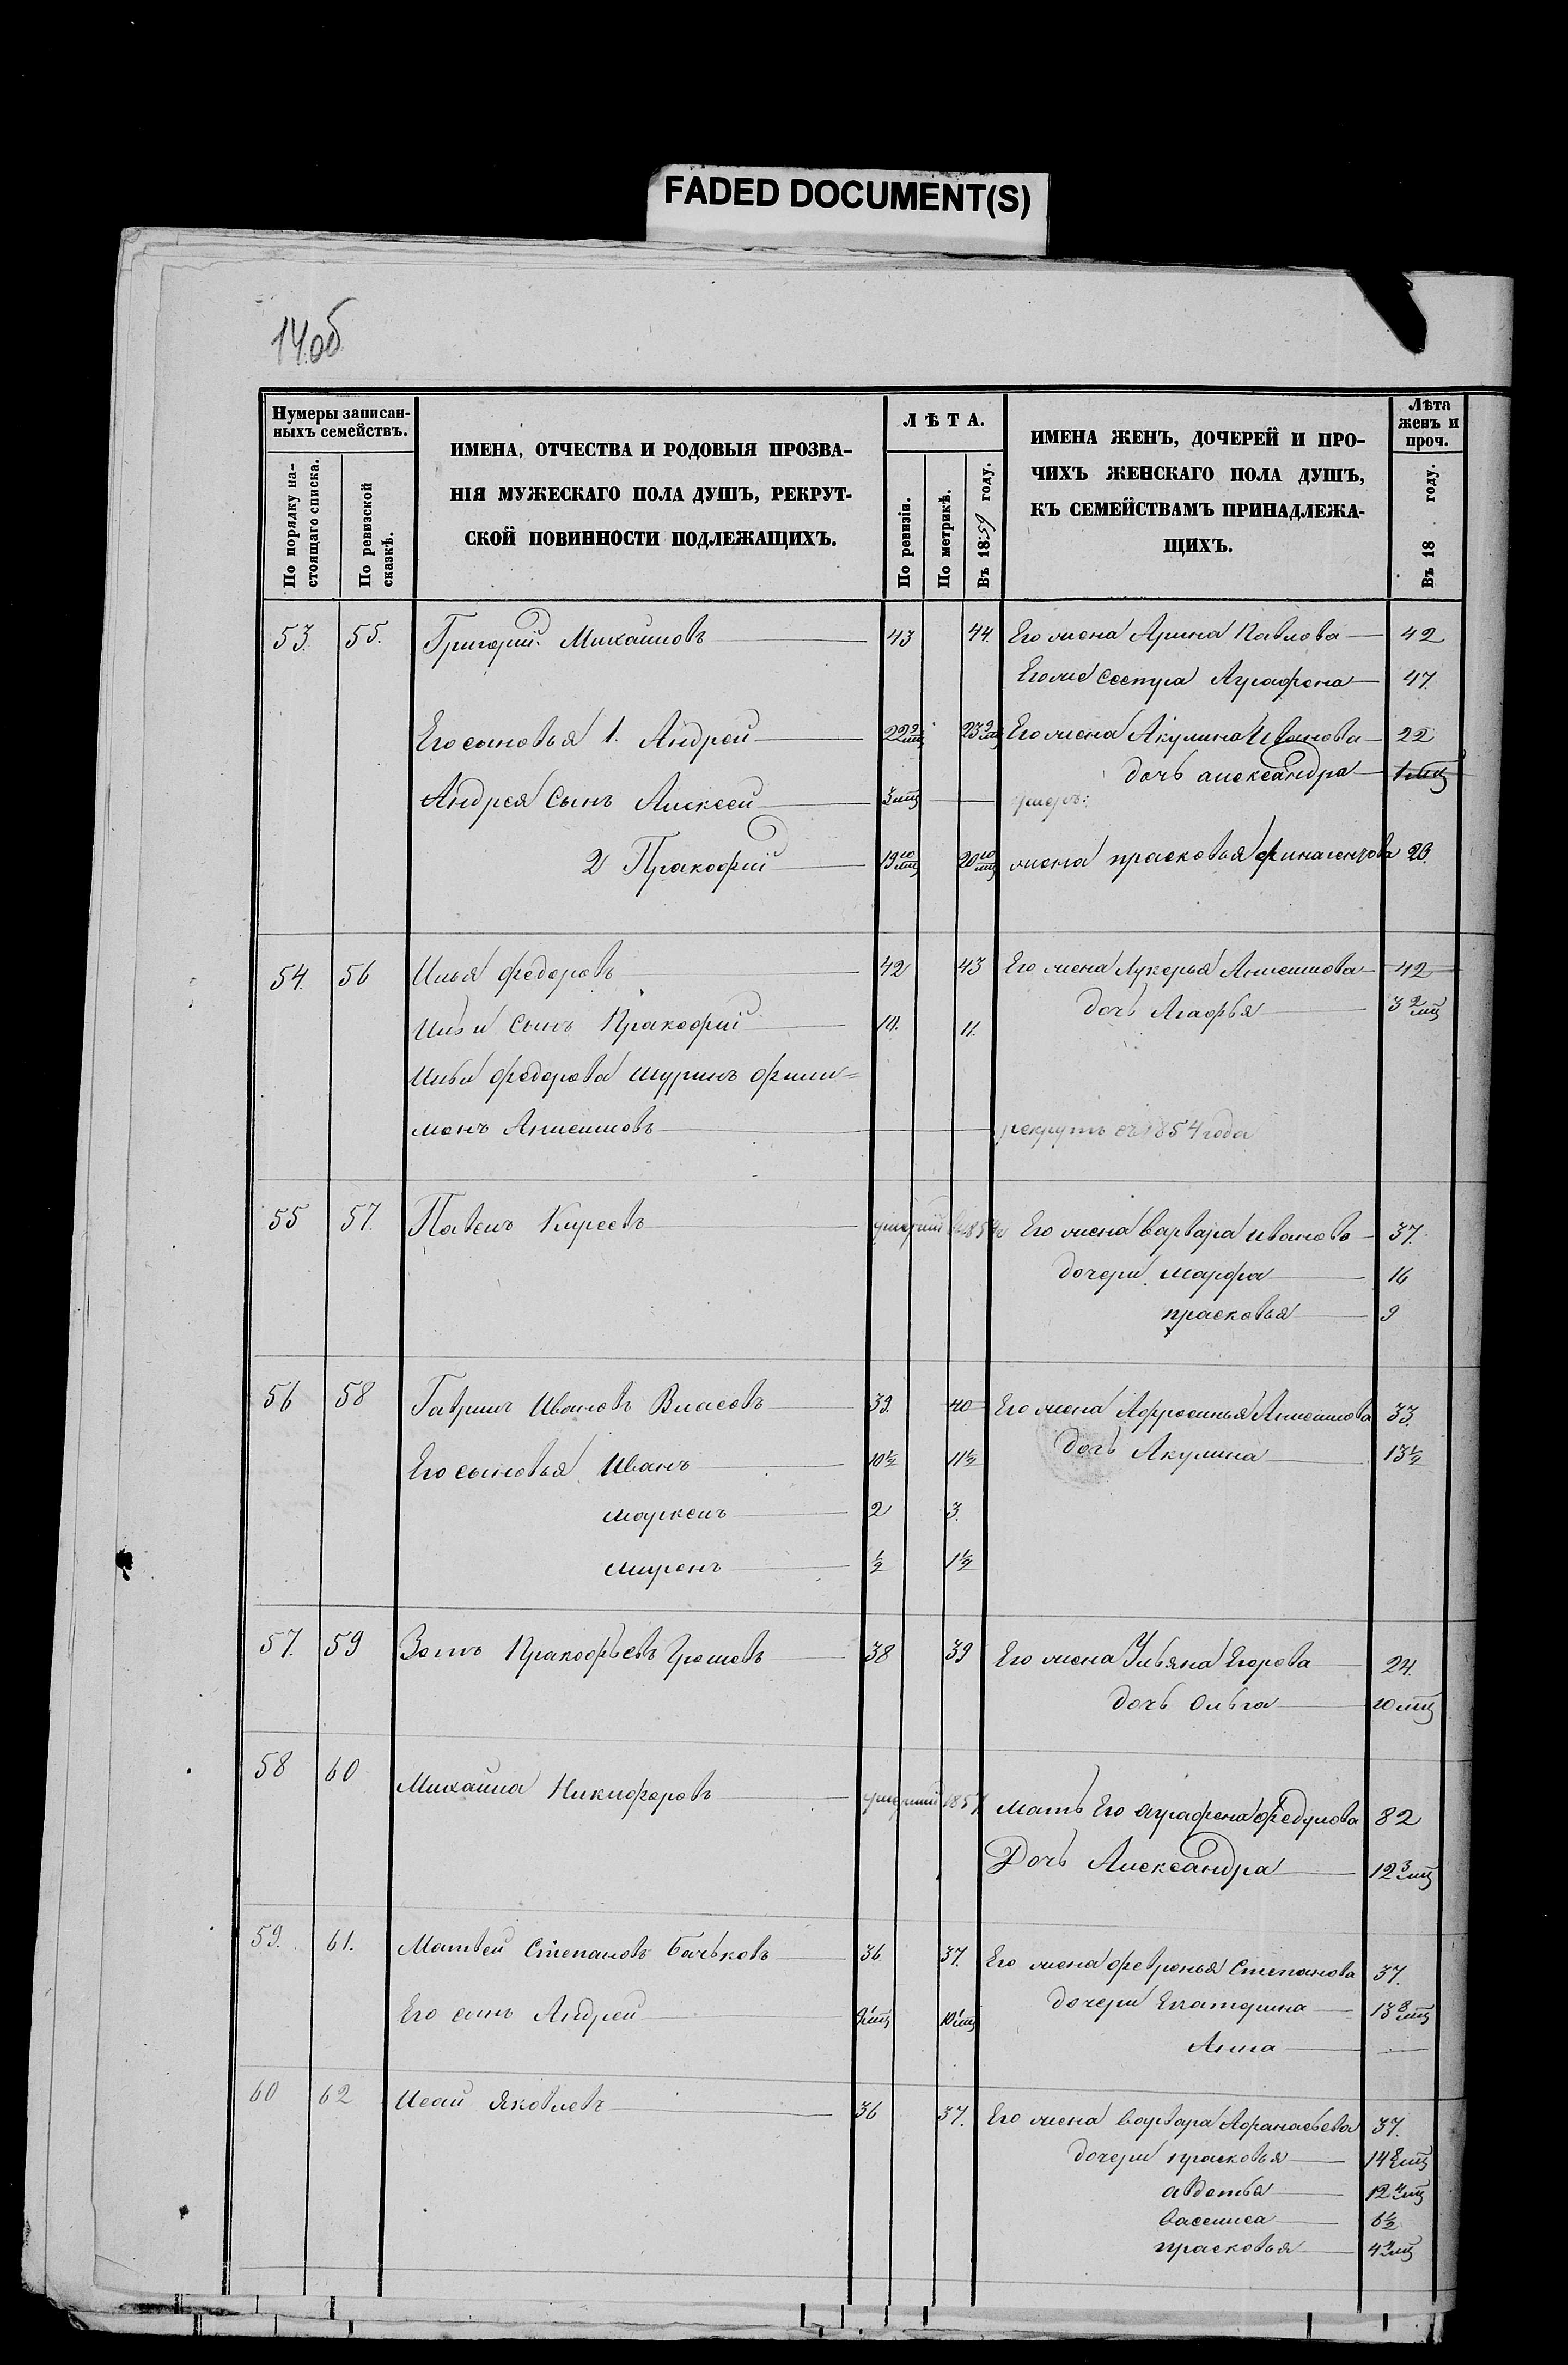 FADED DOCUMENT(S)
14об
Нумеры записан-
ныхъ семействъ.
По порядку на-
стоящаго списка.
По ревизской
сказкѣ.
ИМЕНА, ОТЧЕСТВА И РОДОВЫЯ ПРОЗВА-
НІЯ МУЖЕСКАГО ПОЛА ДУШЪ, РЕКРУТ-
СКОЙ ПОВИННОСТИ ПОДЛЕЖАЩИХЪ.
ЛѢТА.
По ревизіи.
По метрикѣ.
Въ 1859 году.
ИМЕНА ЖЕНЪ, ДОЧЕРЕЙ И ПРО-
ЧИХЪ ЖЕНСКАГО ПОЛА ДУШЪ,
КЪ СЕМЕЙСТВАМЪ ПРИНАДЛЕЖА-
ЩИХЪ.
Лѣта
женъ и
проч.
Въ 18 году.
53. 55. Григорій Михайловъ 43 44. Его жена Арина Павлова 42
Его же сестра Аграфена 47.
Его сыновья 1. Андрей 22 9/мц 23 9/мц Его жена Акулина Иванова 22
дочь александра 1 мц
Андрея Сынъ Алексей 3 мц умеръ:
2 Пракофій 19 10/мц 20 10/мц жена прасковья 23.
54. 56 Илья федоровъ 42 43 Его жена Лукерья Анисимова 42
Ильи сынъ Пракофій 10. 11. дочь Агафья 3 2/мц
Ильи федорова шуринъ фили=
монъ Анисимовъ рекрутъ съ 1854 года
55 57. Павелъ Киреевъ умерший в 1854 г Его жена варвара иванова 37.
дочери марфа 16
прасковья 9
56 58 Гаврилъ Ивановъ Власовъ 39. 40 Его жена Афросинья Анисимова 33.
Его сыновья Иванъ 10½ 11½ дочь Акулина 13½
маркелъ 2 3.
миронъ ½ 1½
57. 59 Зотъ Пракофьевъ Грошовъ 38 39 Его жена Ульяна Егорова 24.
дочь Ольга 10 мц
58 60 Михаила Никифоровъ умерший 1857. мать Его аграфена федулова 82
Дочь Александра 12 3/мц
59. 61. Матвей Степановъ Бачьковъ 36 37. Его жена февронья Степанова 37.
Его сынъ Андрей 9 1/мц 10 1/мц дочери Екатерина 13 8/мц
Анна
60 62 Исай яковлевъ 36 37. Его жена варвара Афанасьева 37.
дочери прасковья 14 8/мц
авдотья 12 4/мц
василиса 6½
прасковья 4 4/мц